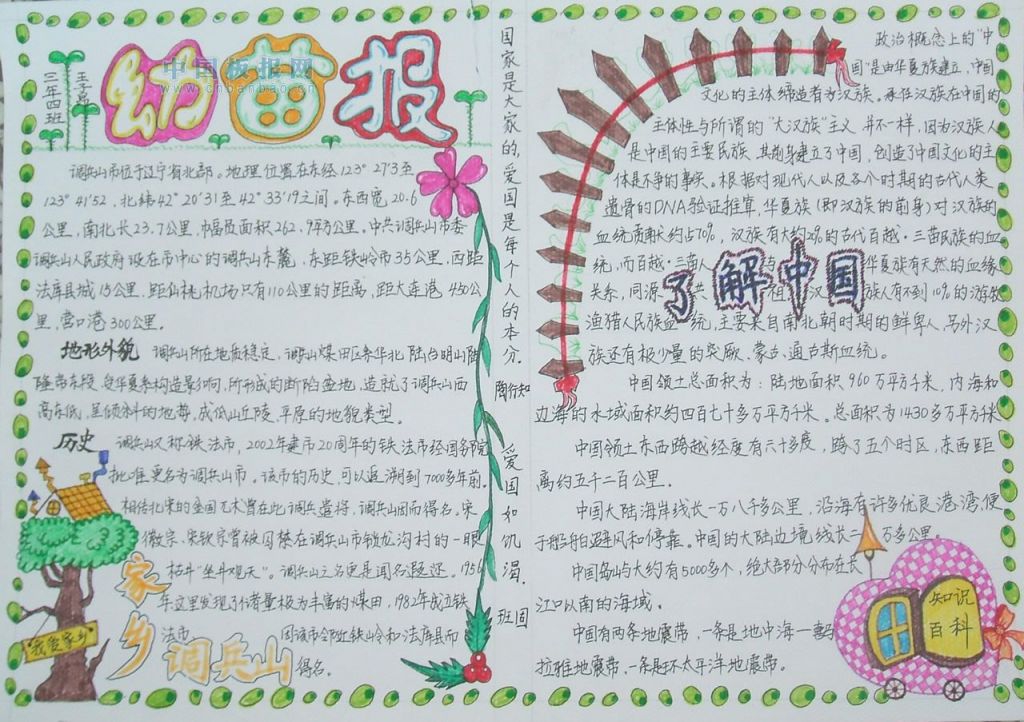 幼苗报
中国板报网
www.chbanbao.cn
三年四班
调兵山市位于辽宁省北部。地理位置在东经123°27′3至
123°41′52,北纬42°20′31至42°33′19之间。东西宽20.6
公里,南北长23.7公里,幅员面积262.9平方公里。中共调兵山市委
调兵山人民政府设在市中心的调兵山东麓,东距铁岭市35公里,西距
法库县城15公里,距仙桃机场只有110公里的距离,距大连港450公
里,营口港300公里。
地形外貌 调兵山所在地质稳定,调兵山煤田区秦华北陆台明山
隆带东段,受华夏系构造影响,所形成的断陷盆地,造就了调兵山西
高东低,呈倾斜的地势,成低山丘陵,平原的地貌类型。
历史 调兵山又称铁法市,2002年建市20周年的铁法市经国务院
批准更名为调兵山市。该市的历史,可以追溯到7000多年前。
相传北宋的金国兀术曾在此调兵遣将,调兵山因而得名。宋
徽宗、宋钦宗曾被囚禁在调兵山市锁龙沟村的一眼
枯井"坐井观天"。调兵山之名更是闻名遐迩。1956
年这里发现了储量极为丰富的煤田,1982年成立铁
法市 因该市邻近铁岭和法库县而
得名。
我爱家乡
家乡
调兵山
国家是大家的,爱国是每个人的本分。
陶行知
爱国如饥渴。
班固
政治概念上的"中
国"是由华夏族建立,中国
文化的主体缔造者为汉族。承任汉族在中国的
主体性与所谓的"大汉族"主义并不一样,因为汉族人
是中国的主要民族,其前身建立了中国,创造了中国文化的主
体是不争的事实。根据对现代人以及各个时期的古代人类
遗骨的DNA验证推算,华夏族(即汉族的前身)对汉族的
血统贡献大约占70%,汉族有大约29%的古代百越·三苗民族的血
统,而百越·三苗人 与 华夏族有天然的血缘
关系,同源 共 祖 汉 族人有不到10%的游牧
渔猎人民族血统,主要来自南北朝时期的鲜卑人,另外汉
族还有极少量的突厥、蒙古、通古斯血统。
了解中国
中国领土总面积为:陆地面积960万平方千米,内海和
边海的水域面积约四百七十多万平方千米。总面积为1430多万平方千米
中国领土东西跨越经度有六十多度,跨了五个时区,东西距
离约五千二百公里。
中国大陆海岸线长一万八千多公里,沿海有许多优良港湾,便
于船舶避风和停靠。中国的大陆边境线长二万多公里。
中国岛屿大约有5000多个,绝大部分分布在长
江口以南的海域。
中国有两条地震带,一条是地中海一喜马
拉雅地震带,一条是环太平洋地震带。
知识
百科